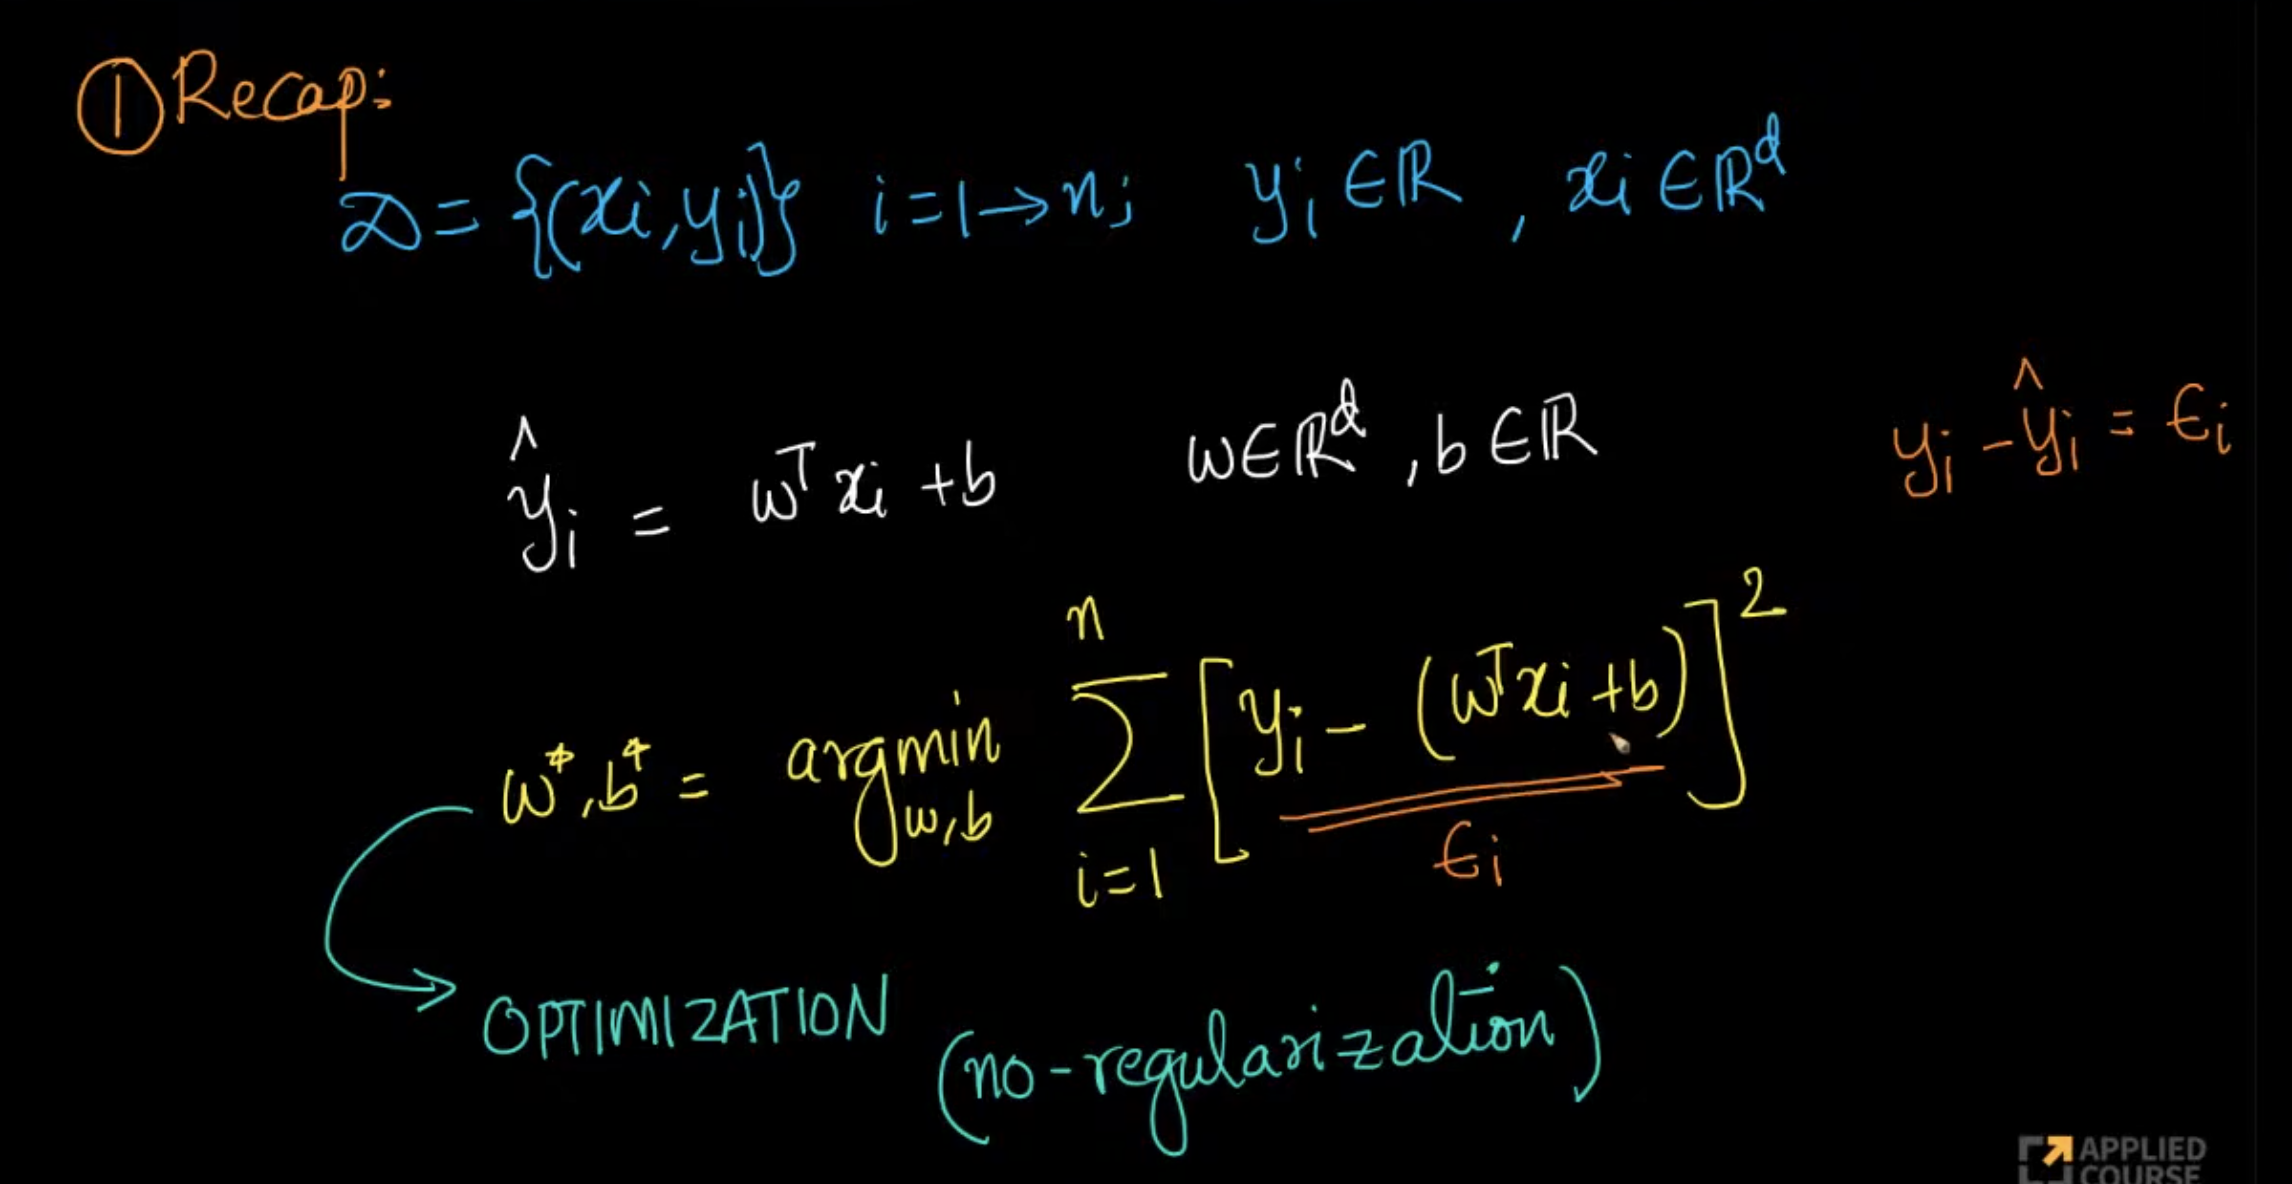 ① Recap:
D = {(xi, yi)} i=1→n; yi ∈ ℝ, xi ∈ ℝᵈ
ŷi = wᵀxi + b w ∈ ℝᵈ, b ∈ ℝ yi - ŷi = ϵi
w*, b* = argmin w,b n Σ i=1 [yi - (wᵀxi + b)]²
ϵi
OPTIMIZATION (no-regularization)
APPLIED
COURSE